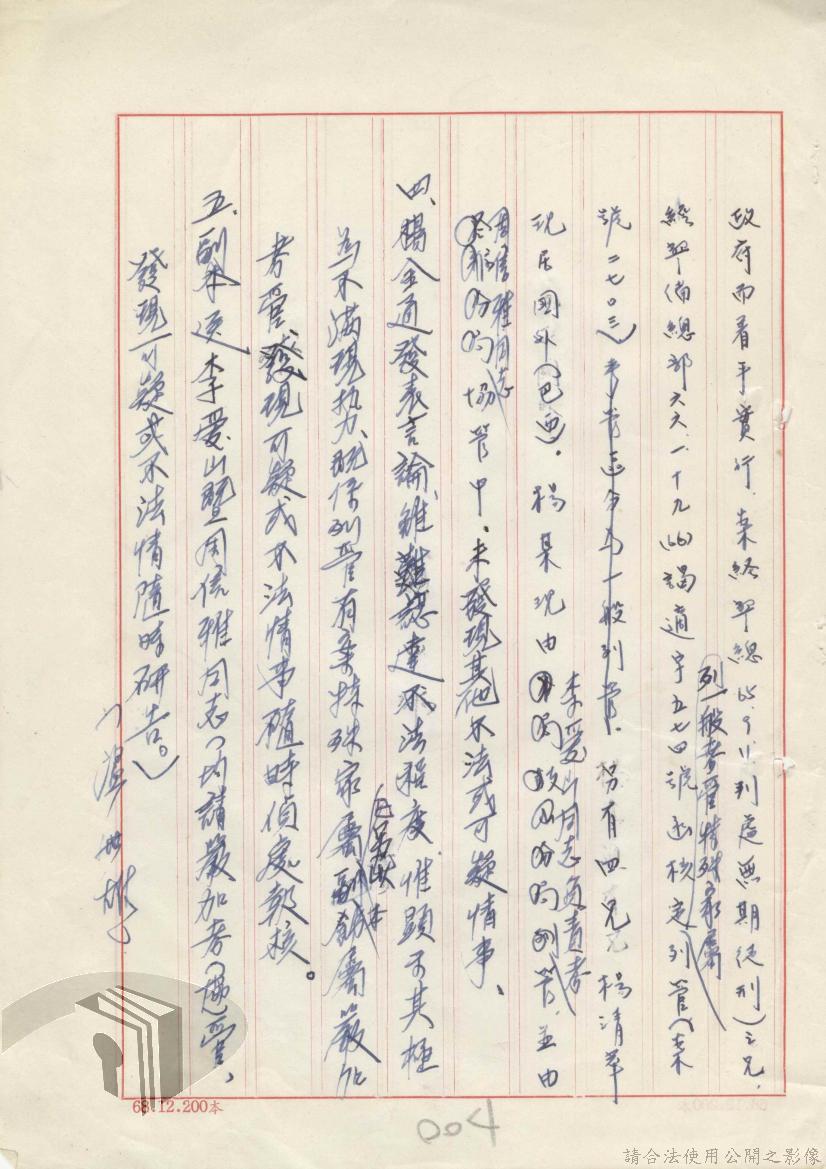 政府而着手實行,案經軍總65.9.11.判處無期徒刑)之兄,
列一般考管特殊家屬
經警備總部六六.一.十九(66)謁適字五七四號函核定列管(案
號二七〇三)考管区分為一般列管.楊有四兄楊清華
現居國外(巴西).楊某現由
李愛山同志負責考
列管.並由
周倍雅同志
協管中、未發現其他不法或可疑情事、
四、楊金通發表言論、雖難認達不法程度.惟顯示其極
為不滿現執力、既係列管有案特殊家屬
嚴加
考管、發現可疑或不法情事隨時偵處報核。
五、副本送李愛山暨周倍雅同志(均請嚴加考(偵)管、
發現可疑或不法情隨時研告。)
68.12.200本
004
請合法使用公開之影像